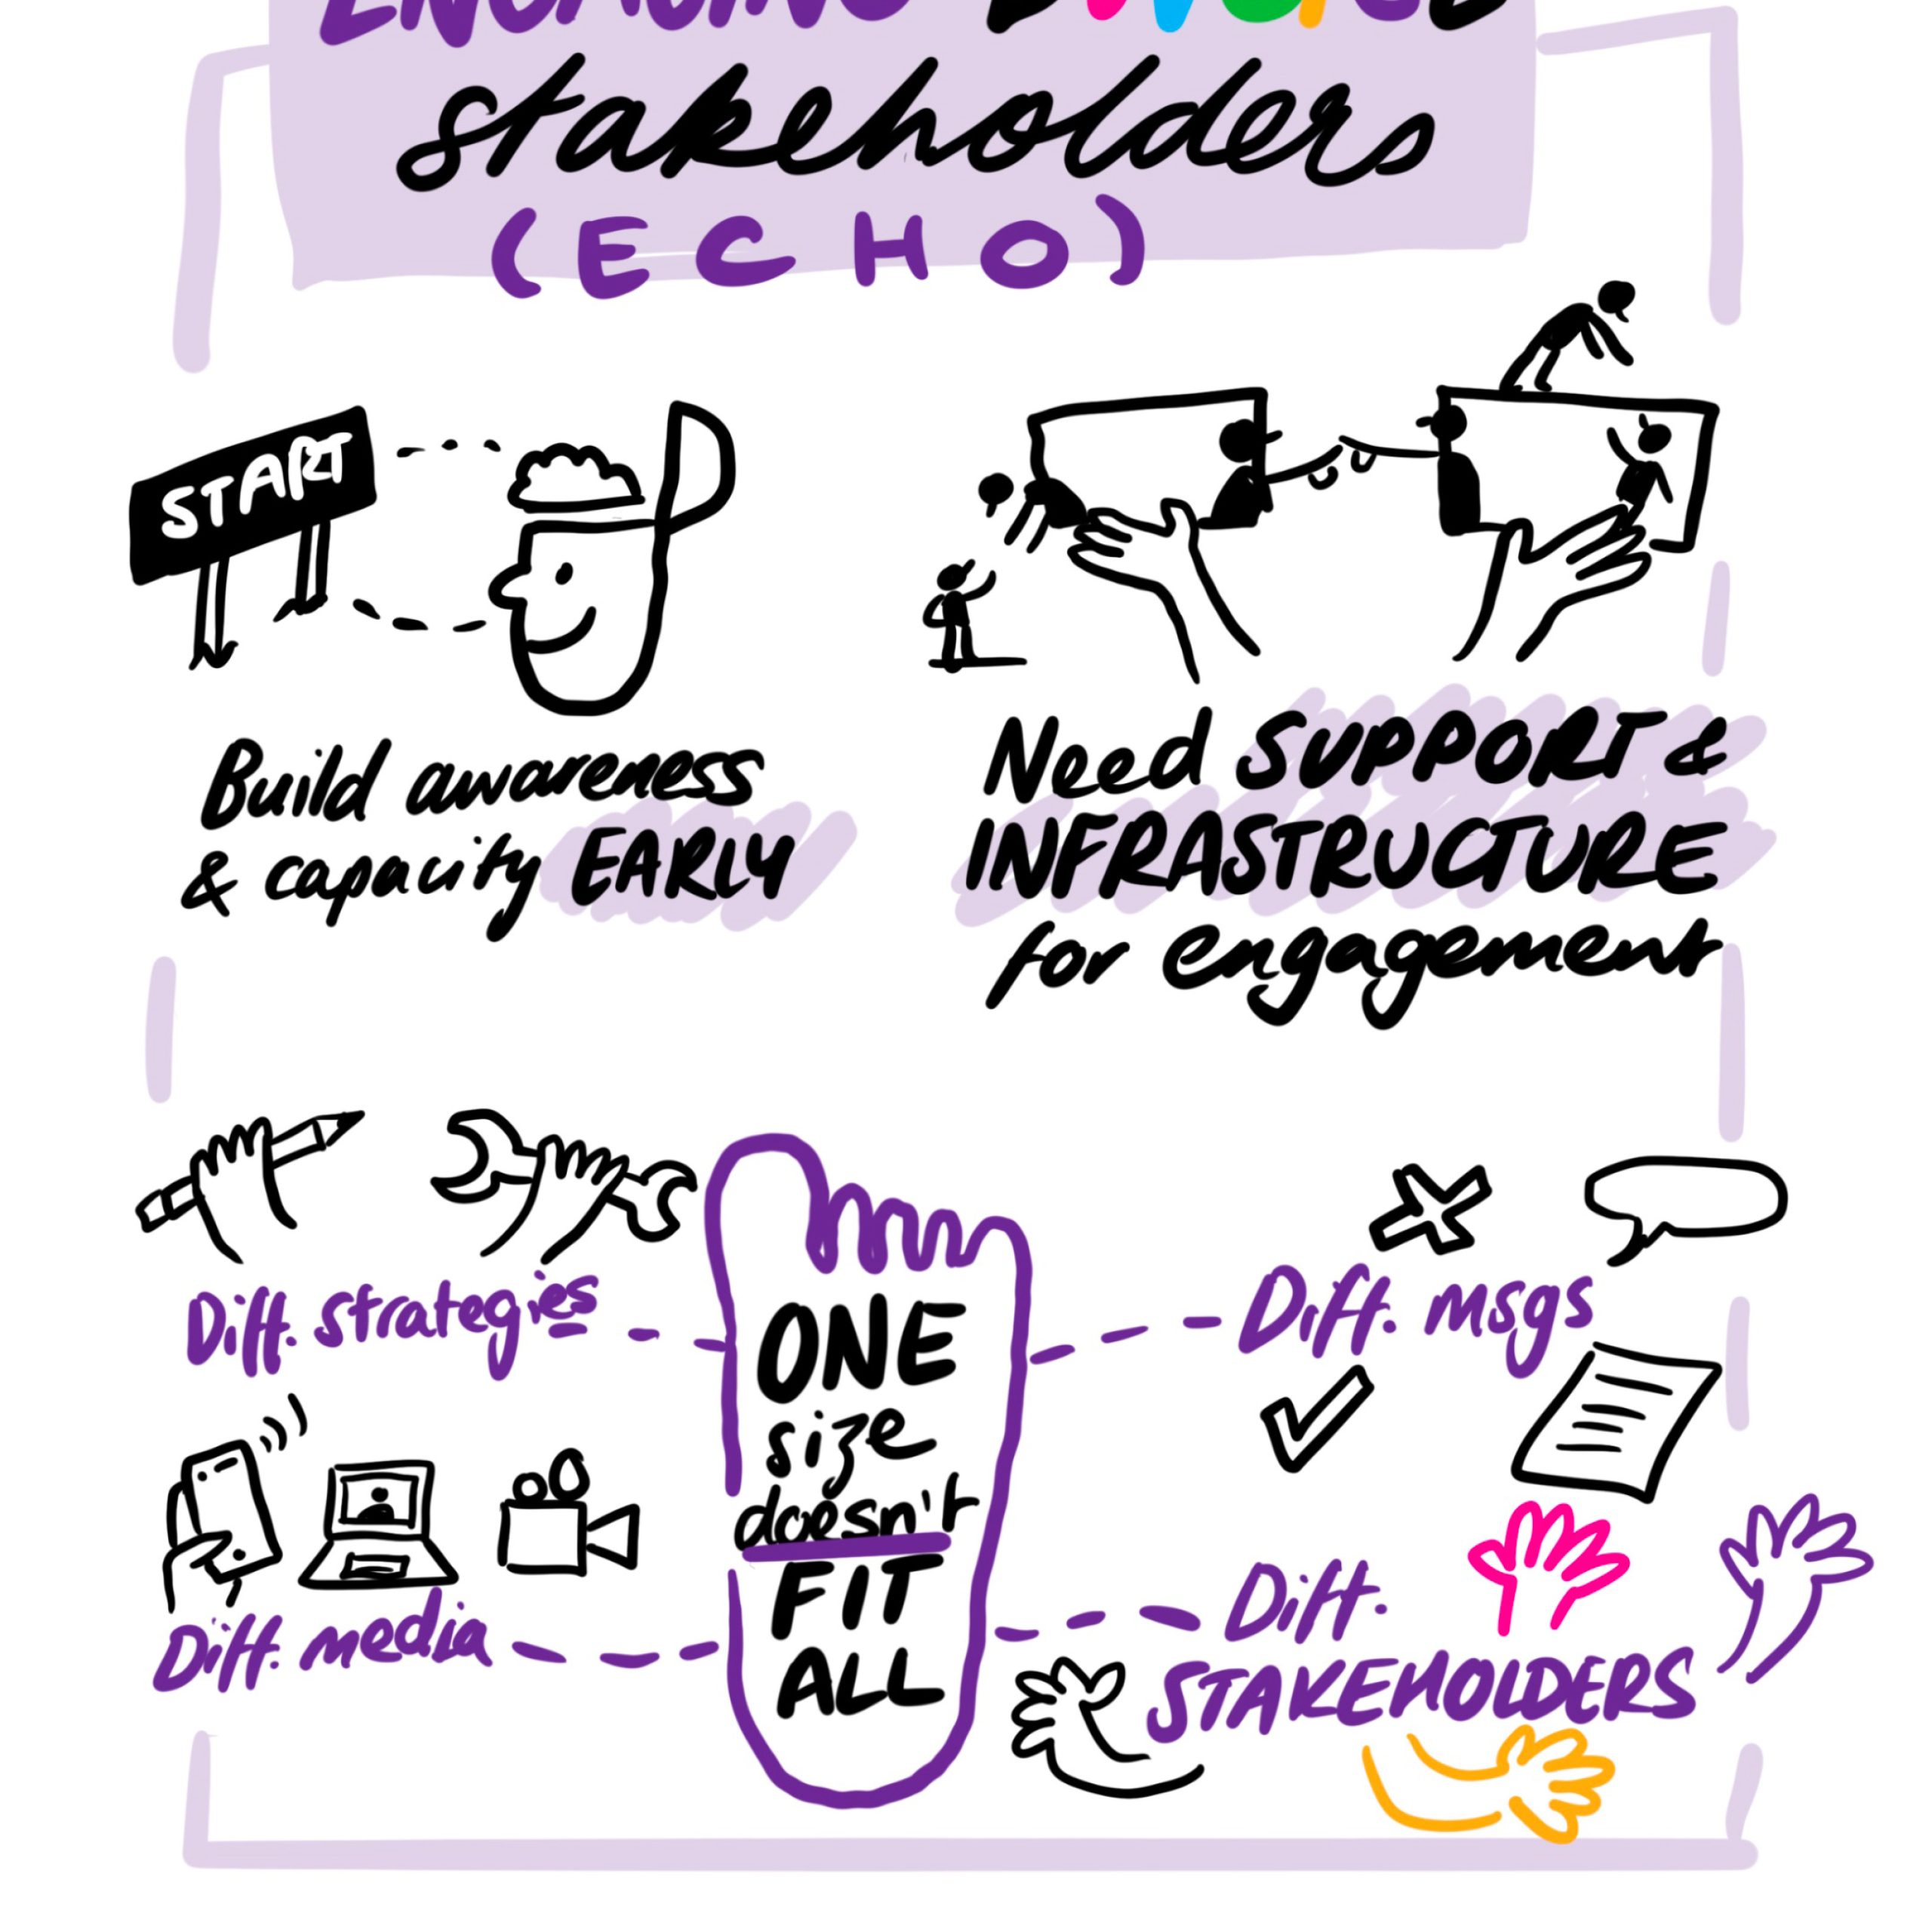 ENGAGING DIVERSE
stakeholders
(ECHO)
START
Build awareness
& capacity EARLY
Need SUPPORT &
INFRASTRUCTURE
for engagement
Diff. strategies
Diff. media
ONE
size
doesn't
FIT
ALL
Diff. msgs
Diff.
STAKEHOLDERS